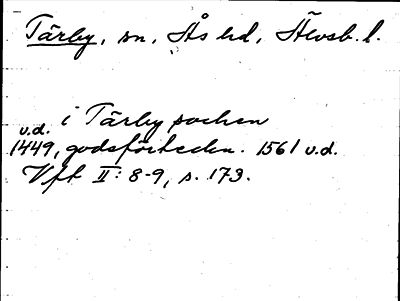 Tärby, sn, Ås hd, Älvsb. l.
i Tärby socken
v.d.
1449, godsförteckn. 1561 v.d.
Vft II: 8-9, s. 173.